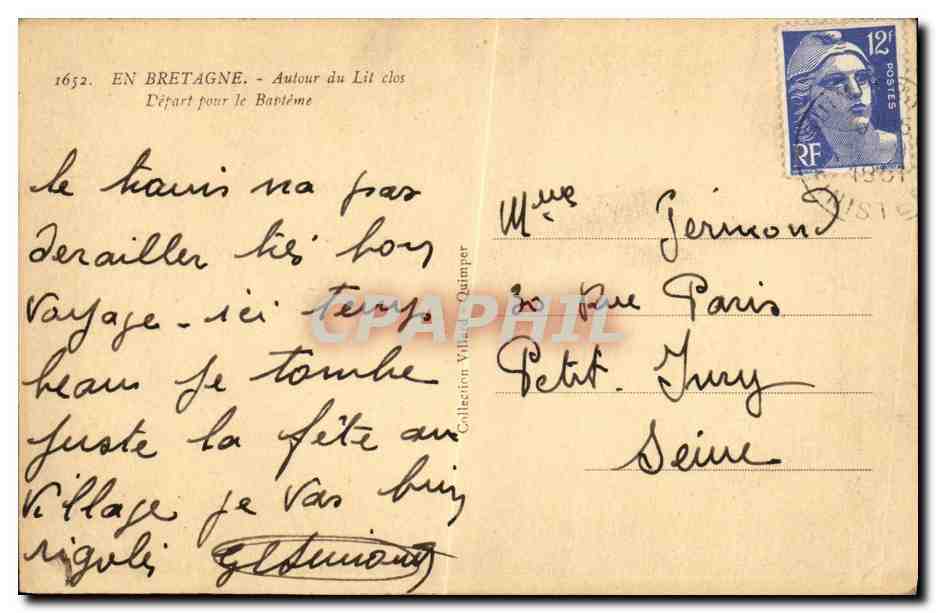 1652. EN BRETAGNE. - Autour du Lit clos
Départ pour le Baptême
le trauis na pas
derailler très bon
voyage - ici temps
beau je tombe
juste la fête au
village je vas bien
rigoler
Collection Villard Quimper
12f
POSTES
RF
1951
Mme Germond
30 Rue Paris
Petit. Ivry
Seine
CPAPHIL